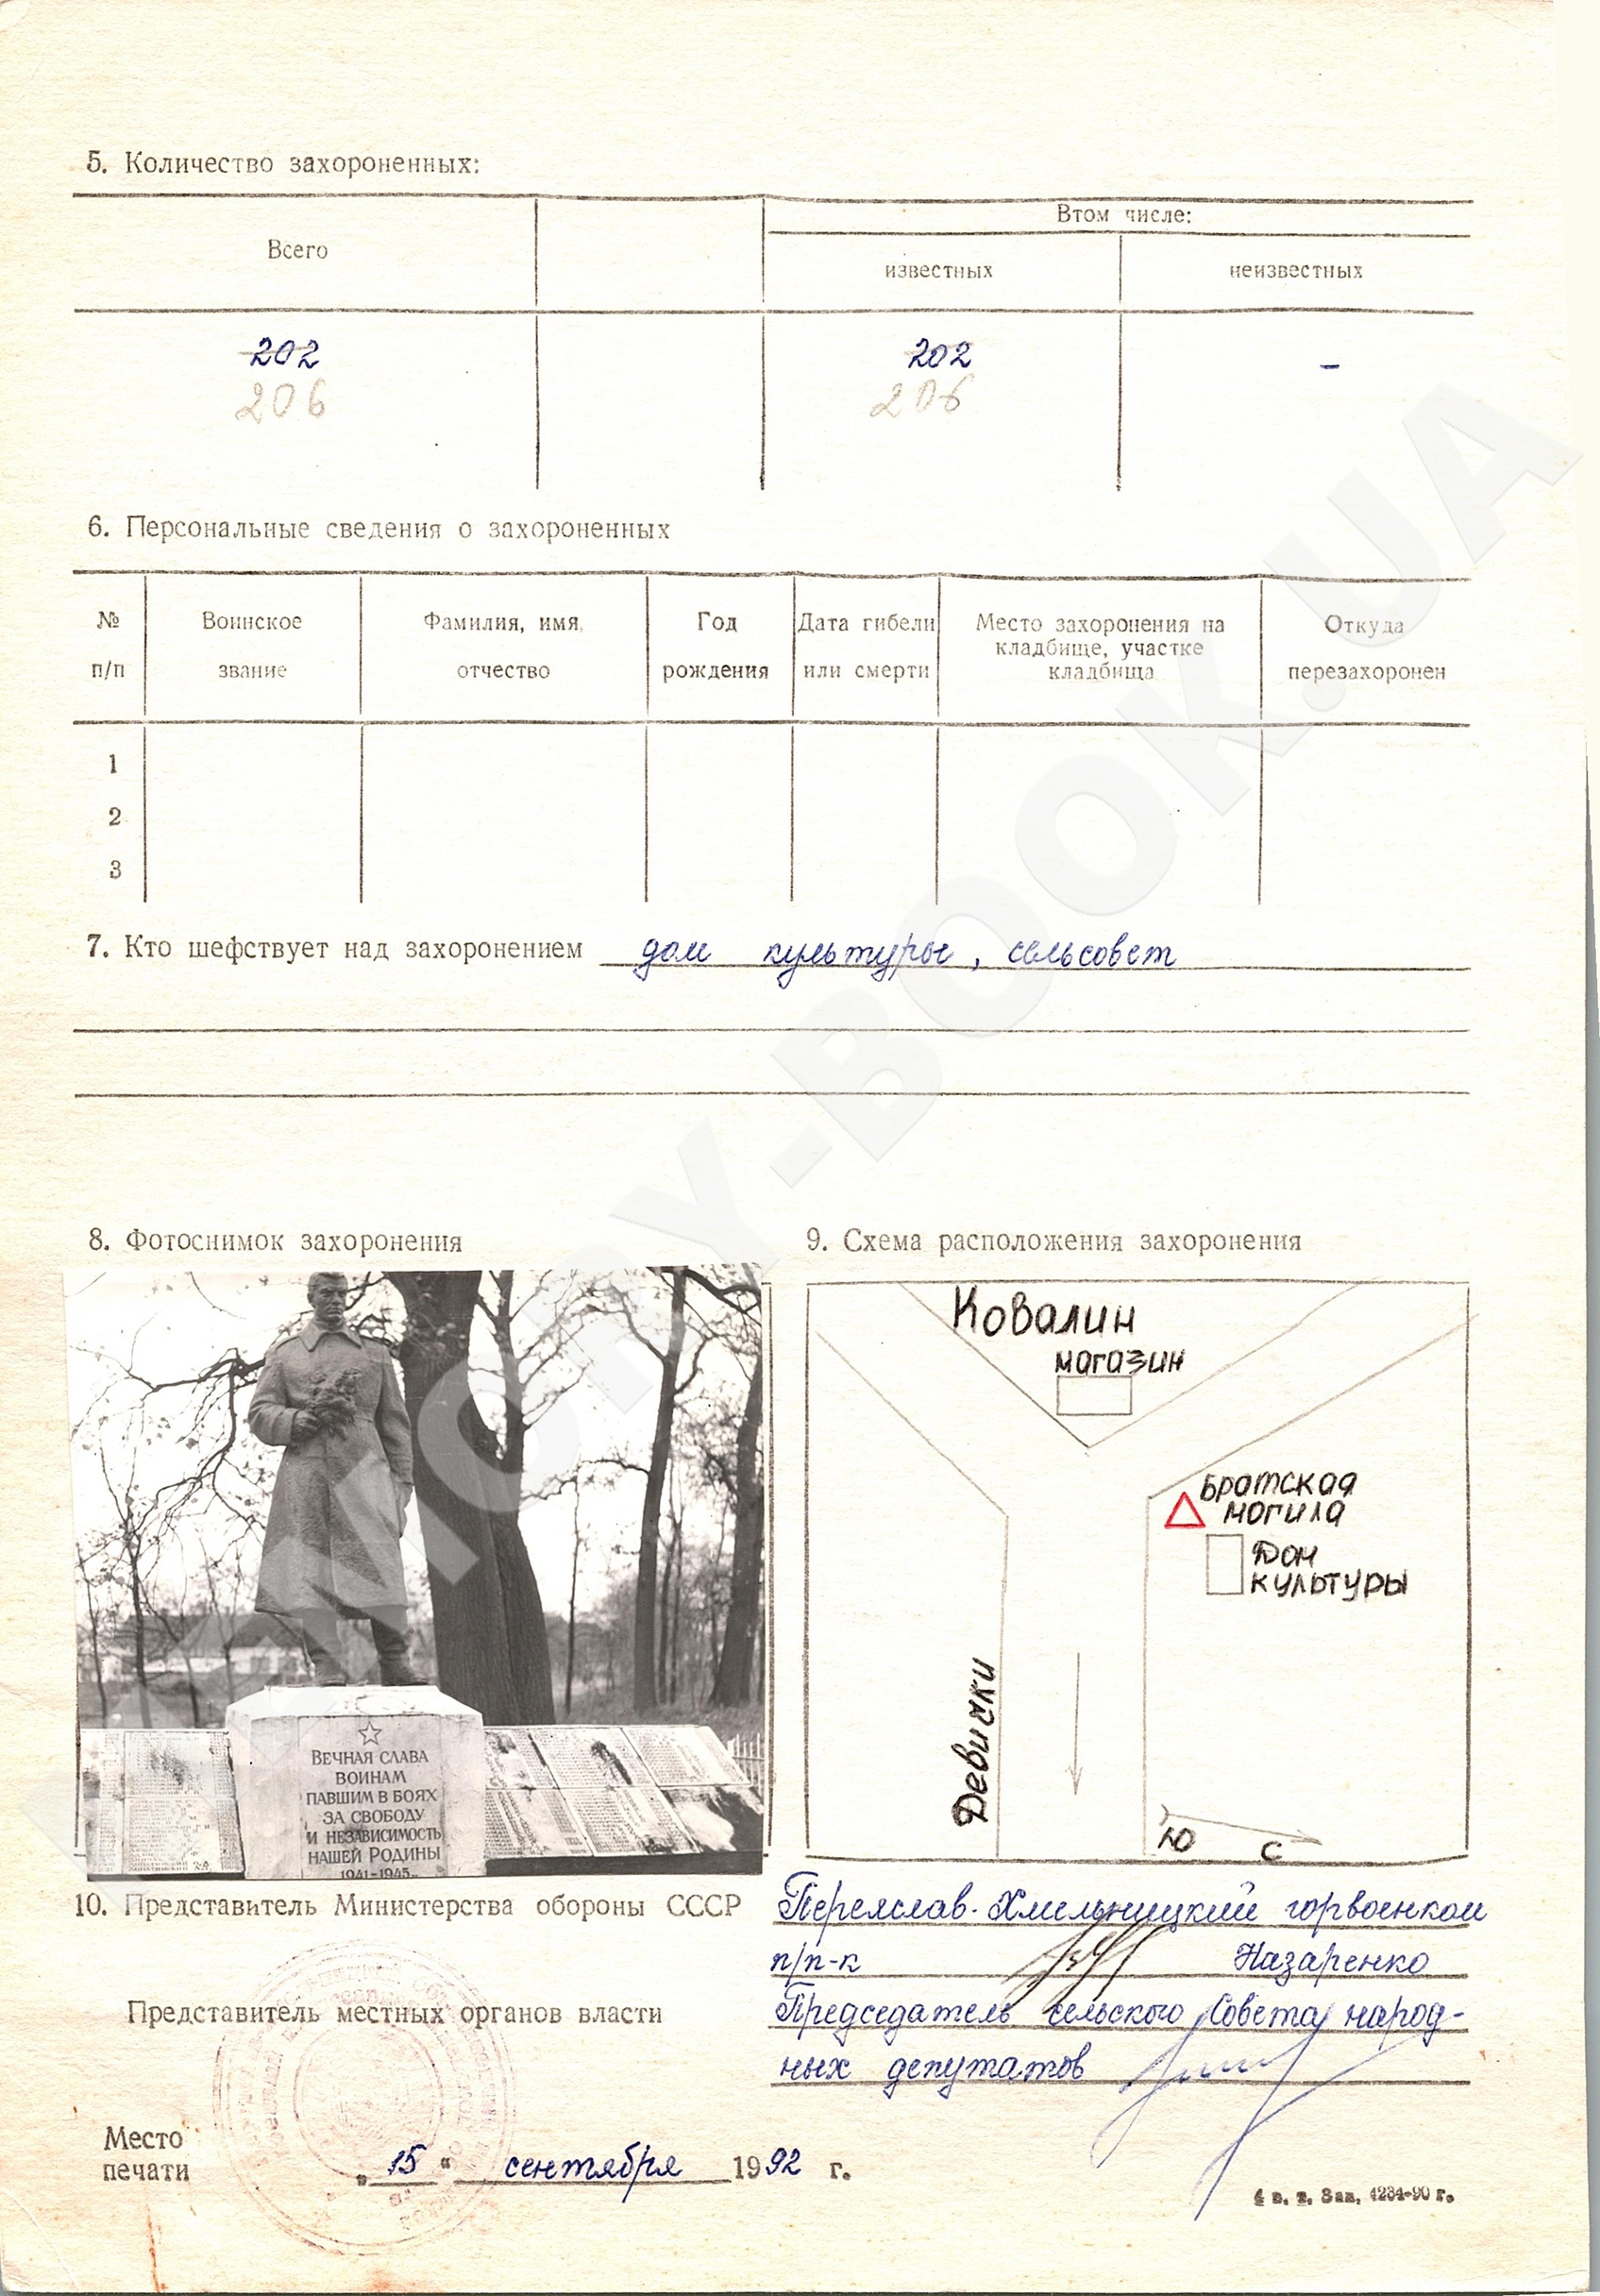 5. Количество захороненных:
Всего
Втом числе:
известных
неизвестных
202
202
-
206
206
6. Персональные сведения о захороненных
№ п/п
Воинское звание
Фамилия, имя, отчество
Год рождения
Дата гибели или смерти
Место захоронения на кладбище, участке кладбища
Откуда перезахоронен
1
2
3
7. Кто шефствует над захоронением дом культуры, сельсовет
8. Фотоснимок захоронения
9. Схема расположения захоронения
☆
ВЕЧНАЯ СЛАВА
ВОИНАМ
ПАВШИМ В БОЯХ
ЗА СВОБОДУ
И НЕЗАВИСИМОСТЬ
НАШЕЙ РОДИНЫ
1941-1945
Ковалин
магазин
Братская
могила
Дом
культуры
Девички
Ю
С
10. Представитель Министерства обороны СССР Переяслав-Хмельницкий горвоенком
п/п-к Назаренко
Представитель местных органов власти Председатель сельского Совета народ-
ных депутатов
Место
печати
„15“ сентября 1992 г.
4 в. т. Зак. 4234-90 г.
MEMORY-BOOK.UA